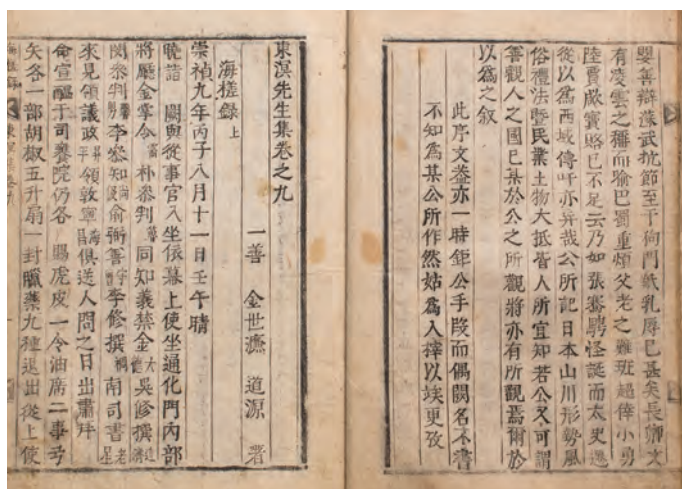 嬰善辯蘇武抗節至于狗鬥羝乳辱已甚矣長卿文
有凌雲之稱而喩巴蜀重煩父老之難班超倖小勇
陸賈厭寶賂已不足云乃如張騫騁怪誕而太史遷
從以爲西域傳吁亦异哉公所記日本山川形勢風
俗禮法曁民業土物大抵皆人所宜知若公又可謂
善觀人之國已某於公之所觀將亦有所觀焉爾於
以爲之敘
此序文盖亦一時鉅公手段而偶闕名不書
不知爲某公所作然姑爲入梓以竢更攷
東溟先生集卷之九
一善 金世濂 道源 著
海槎錄 上
崇禎九年丙子八月十一日壬午晴
曉詣 闕與從事官入坐依幕上使坐通化門內部
將廳金掌令朴參判同知義禁金大德吳修撰達濟
閔參判李參知俞弼善李修撰南司書老星
來見領議政昇平領敦寧海昌俱送人問之日出肅拜
命宣醞于司饔院仍各 賜虎皮一令油席二事弓
矢各一部胡椒五升扇一封臘藥九種退出從上使